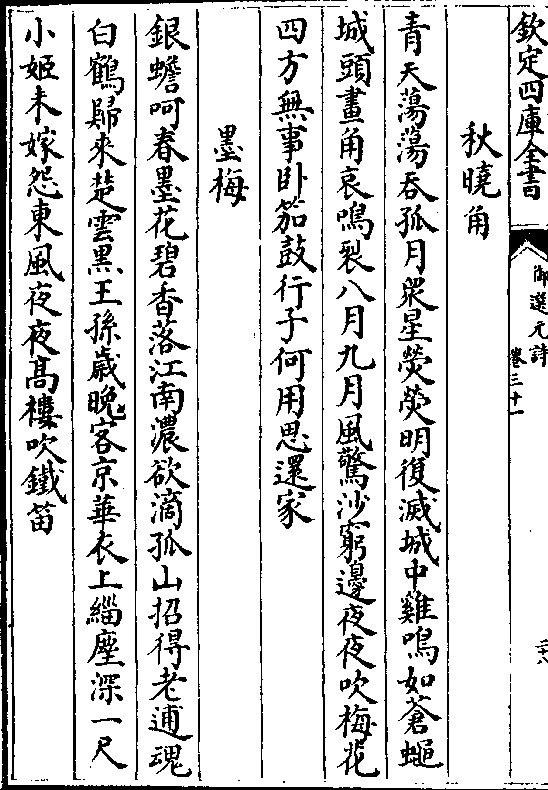 欽定四庫全書
御選元詩
卷三十一
二十八
秋曉角
青天蕩蕩吞孤月衆星熒熒明復滅城中雞鳴如蒼蠅
城頭畫角哀鳴裂八月九月風驚沙窮邊夜夜吹梅花
四方無事卧笳鼓行子何用思還家
墨梅
銀蟾呵春墨花碧香落江南濃欲滴孤山招得老逋魂
白鶴歸來楚雲黒王孫嵗晩客京華衣上緇塵深一尺
小姬未嫁怨東風夜夜髙樓吹鐵笛